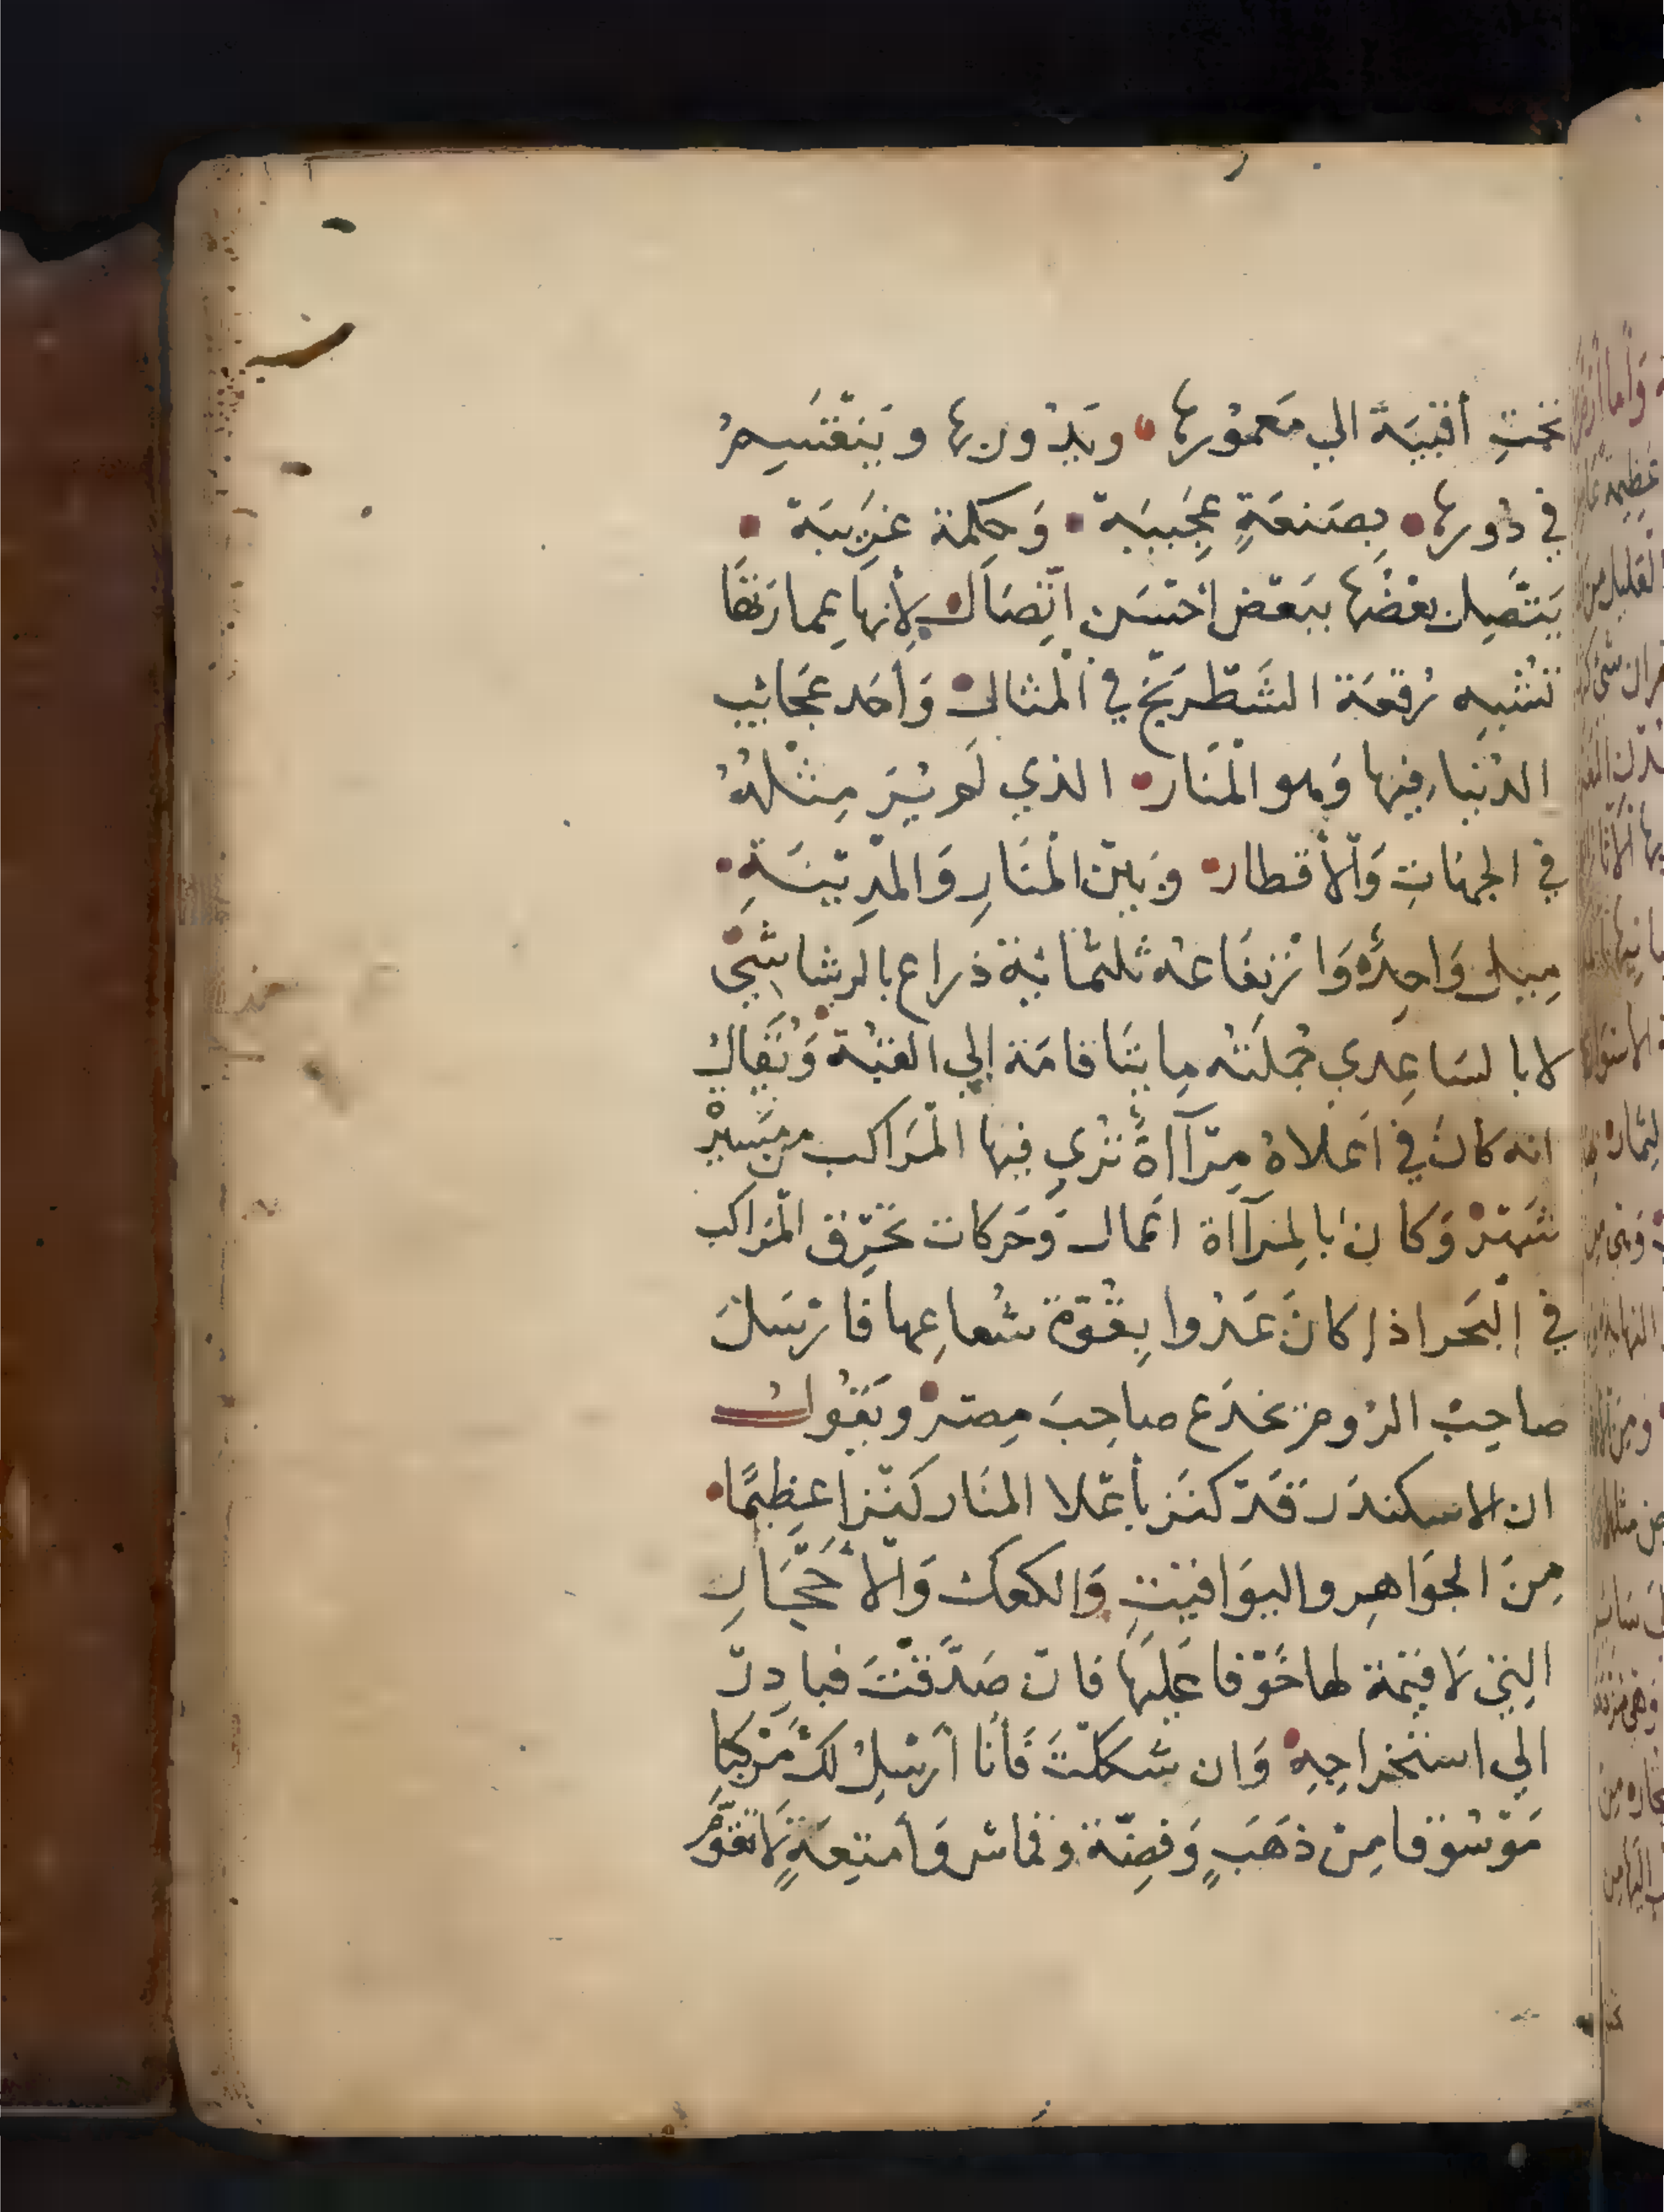 تحت أقبية الي معمورها • ويدور بها وينقسم
في دورها • بصنعة عجيبة • وحكمة غريبة •
يتصل بعضها ببعض احسن اتصال لأنها عمارتها
تشبه رقعة الشطرنج في المثال وأحد عجائب
الدنيا فيها وهو المنار • الذي لم ير مثله
في الجهات والأقطار • وبين المنار والمدينة •
ميل واحد وارتفاعه ثلثمائة ذراع بالرشاشي
لا بالساعدي جملته مايتا قامة إلي القبة ويقال
انه كان في اعلاه مرآاة تري فيها المراكب من مسير
شهر وكان بالمرآاة اعمال وحركات تحرق المراكب
في البحر اذا كان عدوا بقوة شعاعها فارسل
صاحب الروم يخدع صاحب مصر ويقول
ان الاسكندر قد كنز بأعلا المنار كنزا عظيما •
من الجواهر واليواقيت والكعوك والأحجار
التي لا قيمة لها خوفا عليها فان صدقت فبادر
الي استخراجه وان شككت فأنا أرسل لك مركبا
موسوقا من ذهب وفضة وقماش وأمتعة لا تقوم